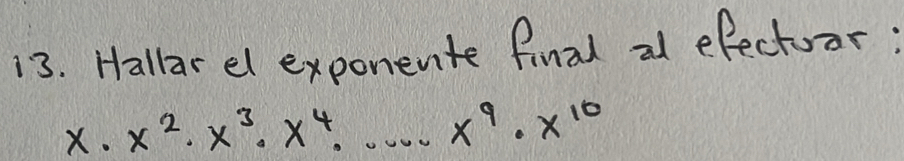 13. Hallar el exponente final al efectuar:
x . x² . x³ . x⁴ . .... x⁹ . x¹⁰